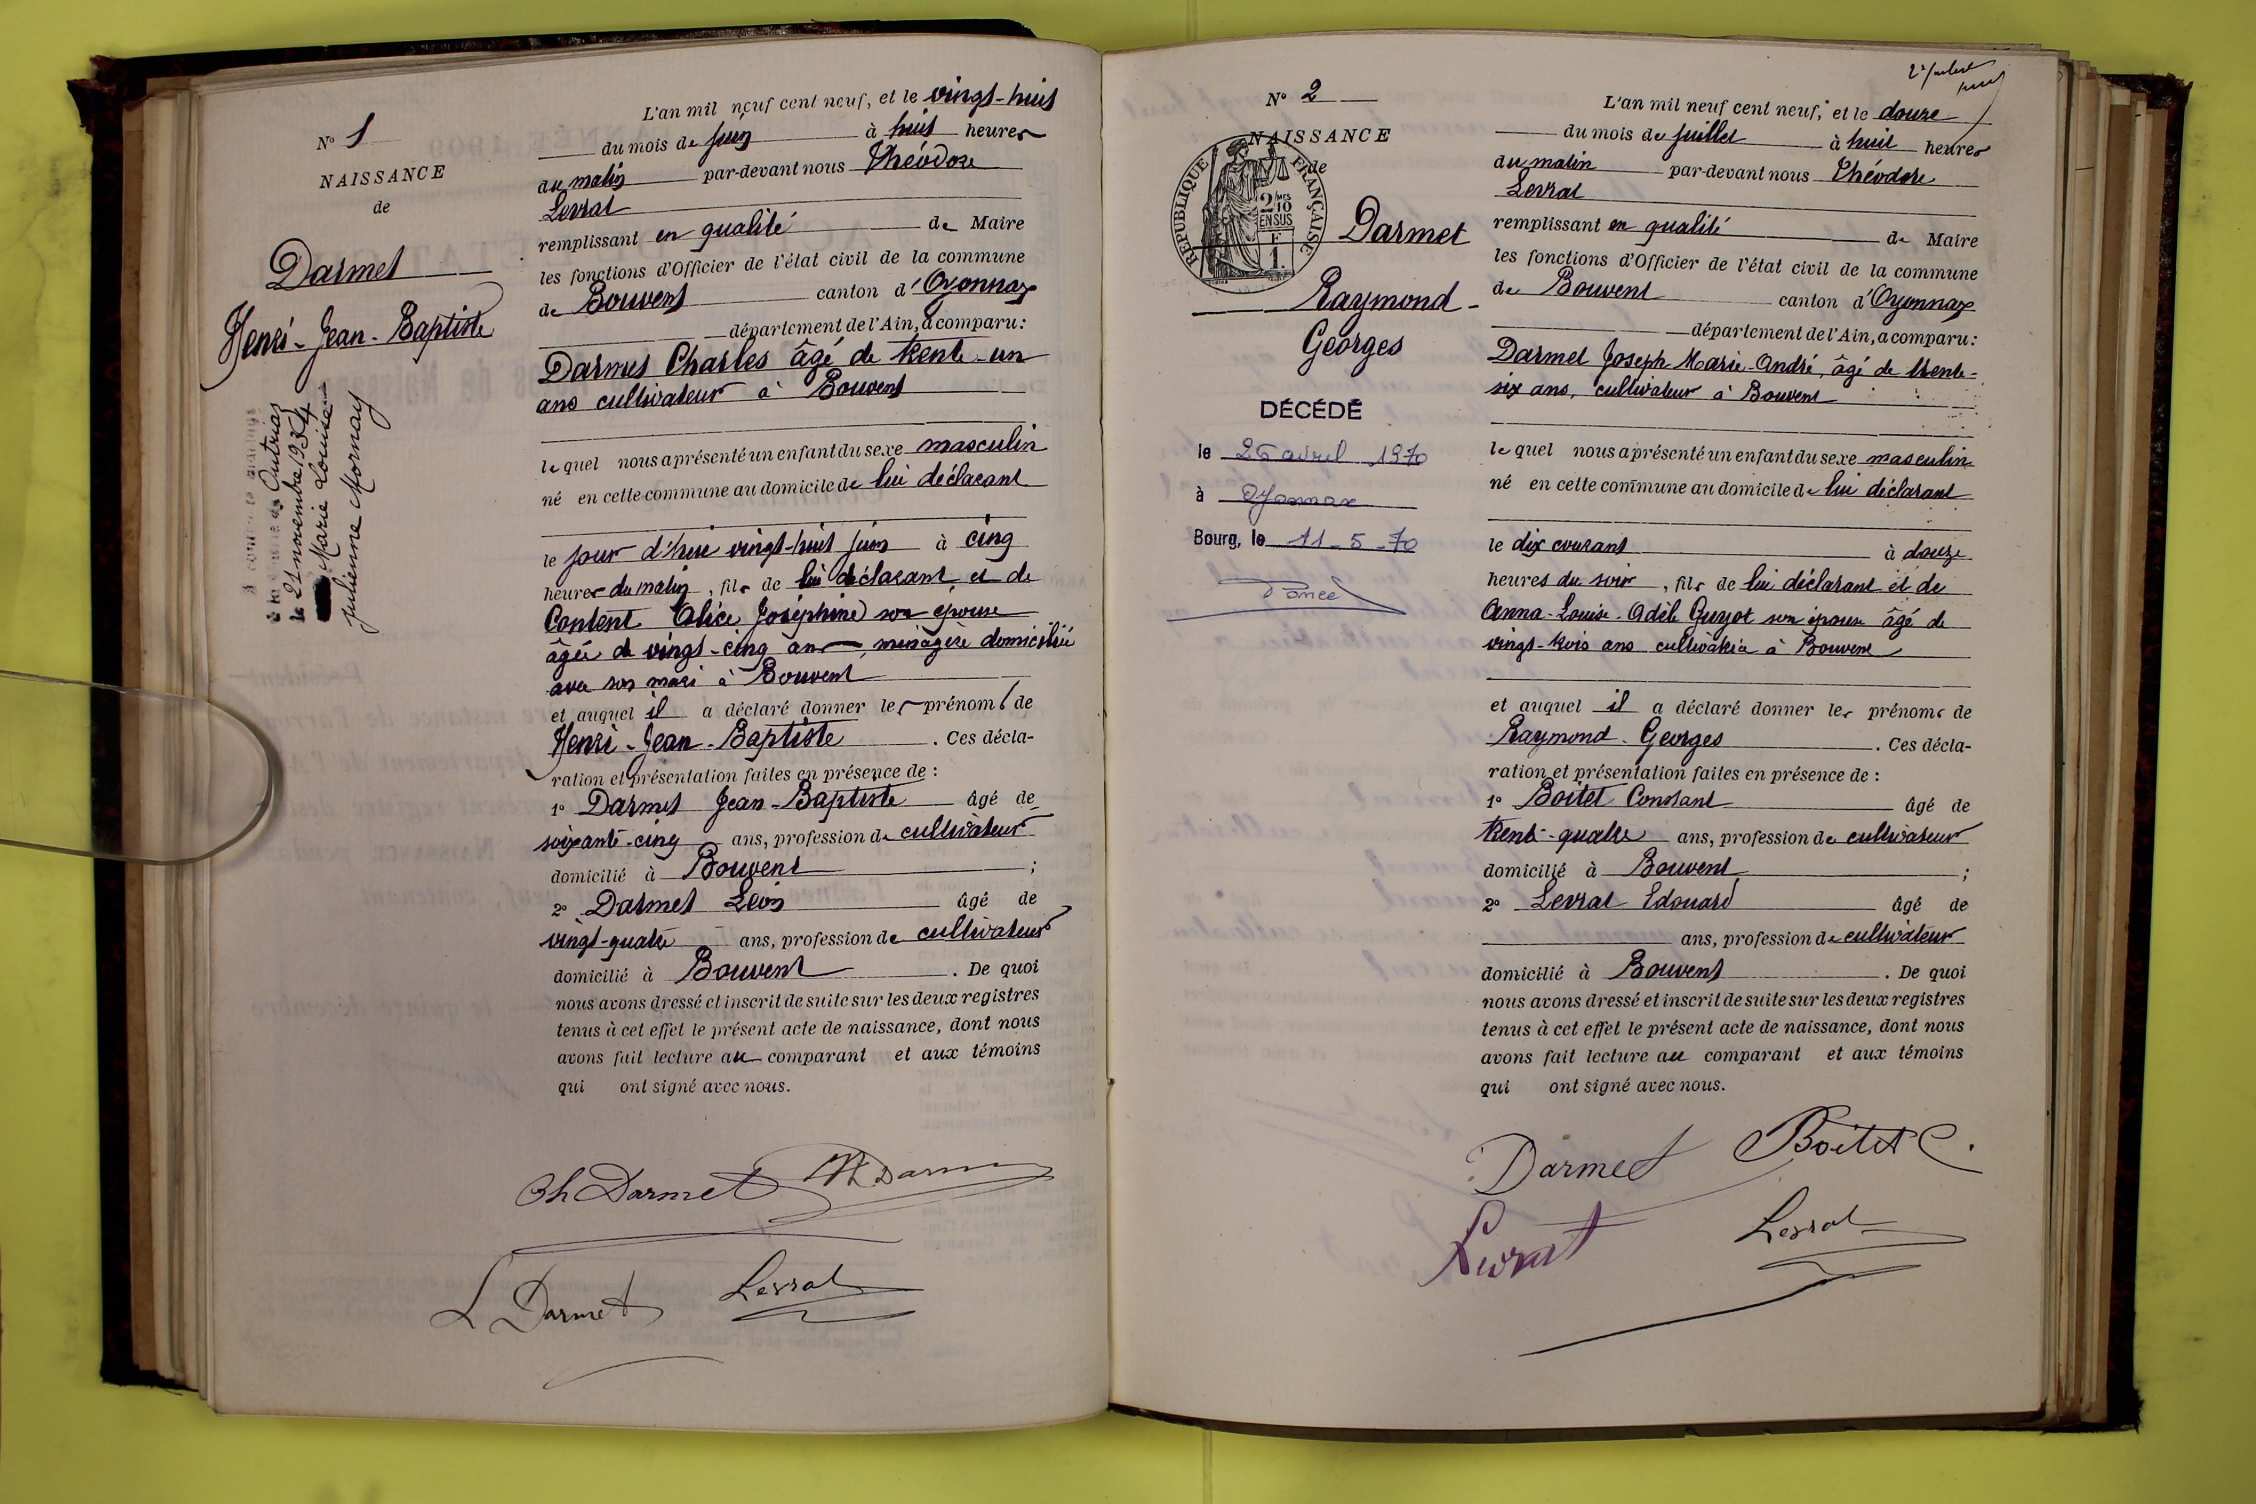 N° 1
NAISSANCE
de
Darmet
Henri-Jean-Baptiste
à Outriaz
le 21 novembre 1934
Marie Louise
Julienne Mornay
L'an mil neuf cent neuf, et le vingt-huit
du mois de juin à huit heures
du matin par-devant nous Théodore
Levrat
remplissant en qualité de Maire
les fonctions d'Officier de l'état civil de la commune
de Bouvent canton d'Oyonnax
département de l'Ain, a comparu:
Darmet Charles âgé de trente-un
ans cultivateur à Bouvent
lequel nous a présenté un enfant du sexe masculin
né en cette commune au domicile de lui déclarant
le jour d'hui vingt-huit juin à cinq
heures du matin, fils de lui déclarant et de
Content Alice Joséphine son épouse
âgée de vingt-cinq ans, ménagère domiciliée
avec son mari à Bouvent
et auquel il a déclaré donner les prénoms de
Henri-Jean-Baptiste. Ces décla-
ration et présentation faites en présence de :
1° Darmet Jean-Baptiste âgé de
soixante-cinq ans, profession de cultivateur
domicilié à Bouvent ;
2° Darmet Léon âgé de
vingt-quatre ans, profession de cultivateur
domicilié à Bouvent. De quoi
nous avons dressé et inscrit de suite sur les deux registres
tenus à cet effet le présent acte de naissance, dont nous
avons fait lecture au comparant et aux témoins
qui ont signé avec nous.
Ch Darmet
L Darmet Levrat
2e juillet
N° 2
NAISSANCE
de
RÉPUBLIQUE FRANÇAISE
2/10 MES
EN SUS
F
1.
Darmet
Raymond-
Georges
DÉCÉDÉ
le 26 avril 1970
à Oyonnax
Bourg, le 11-5-70
L'an mil neuf cent neuf, et le douze
du mois de juillet à huit heures
du matin par-devant nous Théodore
Levrat
remplissant en qualité de Maire
les fonctions d'Officier de l'état civil de la commune
de Bouvent canton d'Oyonnax
département de l'Ain, a comparu:
Darmet Joseph-Marie-André, âgé de trente-
six ans, cultivateur à Bouvent
lequel nous a présenté un enfant du sexe masculin
né en cette commune au domicile de lui déclarant
le dix courant à douze
heures du soir, fils de lui déclarant et de
Anna-Louise-Adèle Guyot son épouse âgé de
vingt-trois ans cultivatrice à Bouvent
et auquel il a déclaré donner les prénoms de
Raymond-Georges. Ces décla-
ration et présentation faites en présence de :
1° Boitet Constant âgé de
trente-quatre ans, profession de cultivateur
domicilié à Bouvent ;
2° Levrat Edouard âgé de
ans, profession de cultivateur
domicilié à Bouvent. De quoi
nous avons dressé et inscrit de suite sur les deux registres
tenus à cet effet le présent acte de naissance, dont nous
avons fait lecture au comparant et aux témoins
qui ont signé avec nous.
Darmet Boitet C.
Levrat Levrat